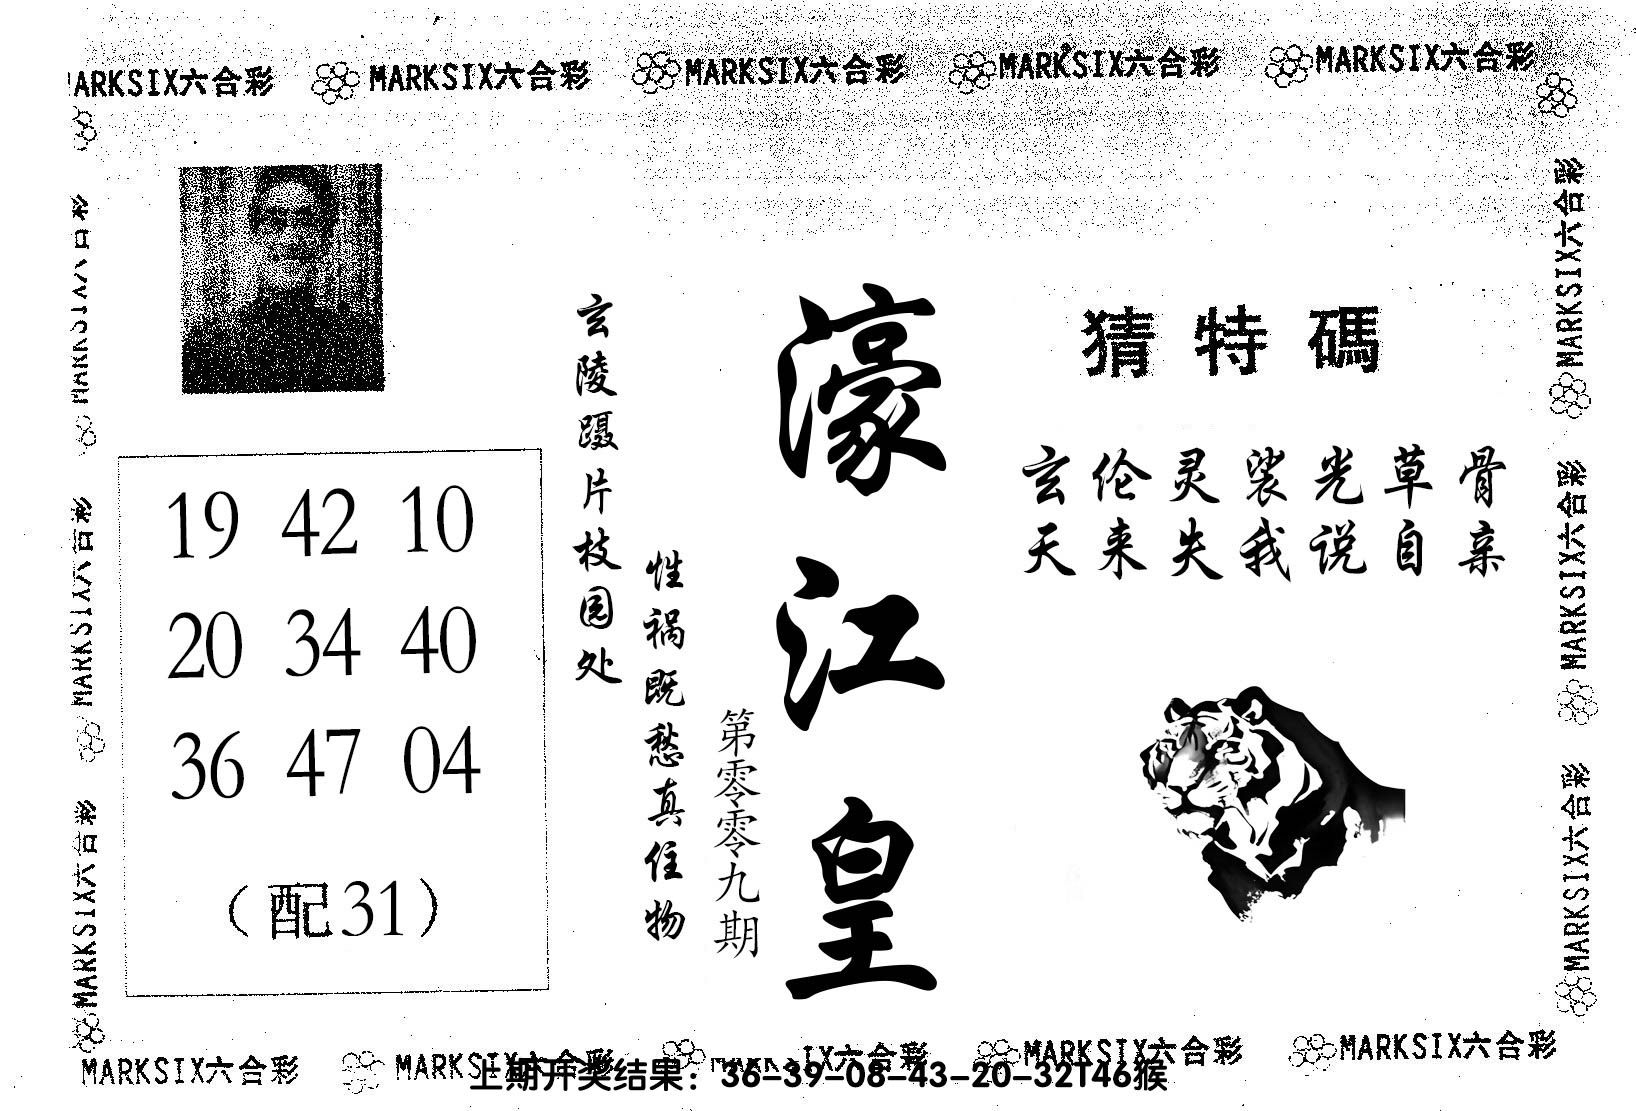 MARKSIX六合彩 MARKSIX六合彩 MARKSIX六合彩 MARKSIX六合彩
猜特碼
玄伦灵裳光草骨
天来失我说自亲
濠江皇
第零零九期
玄陵蹑片枝园处
性祸既愁真住物
19 42 10
20 34 40
36 47 04
（配31）
MARKSIX六合彩
MARKSIX六合彩
MARKSIX六合彩
MARKSIX六合彩
MARKSIX六合彩 MARKSIX六合彩 MARKSIX六合彩 MARKSIX六合彩
上期开奖结果：36-39-08-43-20-32T46猴